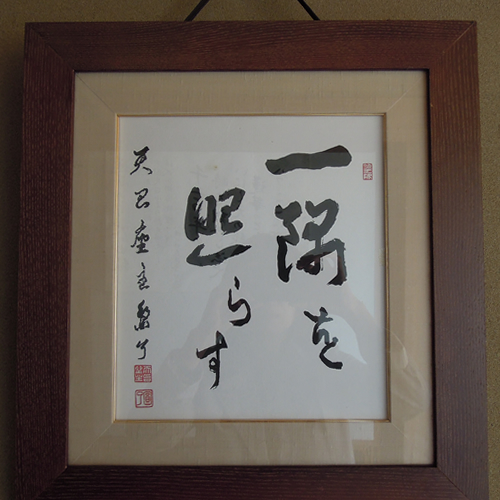 一隅を
照らす
天台座主